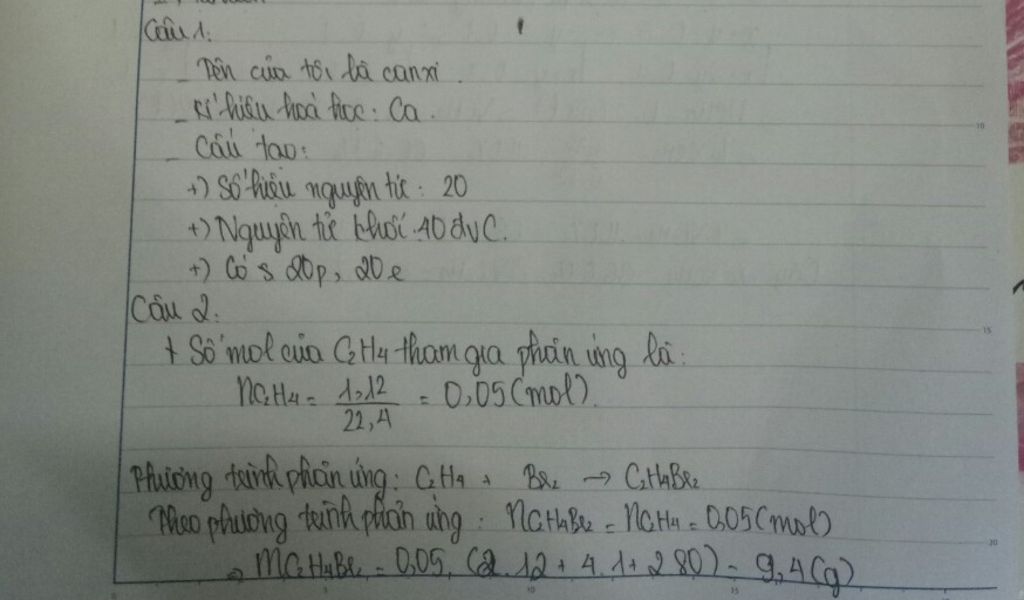 Câu 1:
_ Tên của tôi là canxi.
_ Kí hiệu hoá học: Ca.
_ Cấu tạo:
+) Số hiệu nguyên tử: 20
+) Nguyên tử khối: 40 đvC.
+) Có s 20p, 20e
Câu 2:
+ Số mol của C2H4 tham gia phản ứng là:
nC2H4 = 1,12 / 22,4 = 0,05 (mol).
Phương trình phản ứng: C2H4 + Br2 → C2H4Br2
Theo phương trình phản ứng: nC2H4Br2 = nC2H4 = 0,05 (mol)
⇒ mC2H4Br2 = 0,05. (2.12 + 4.1 + 2.80) = 9,4 (g)